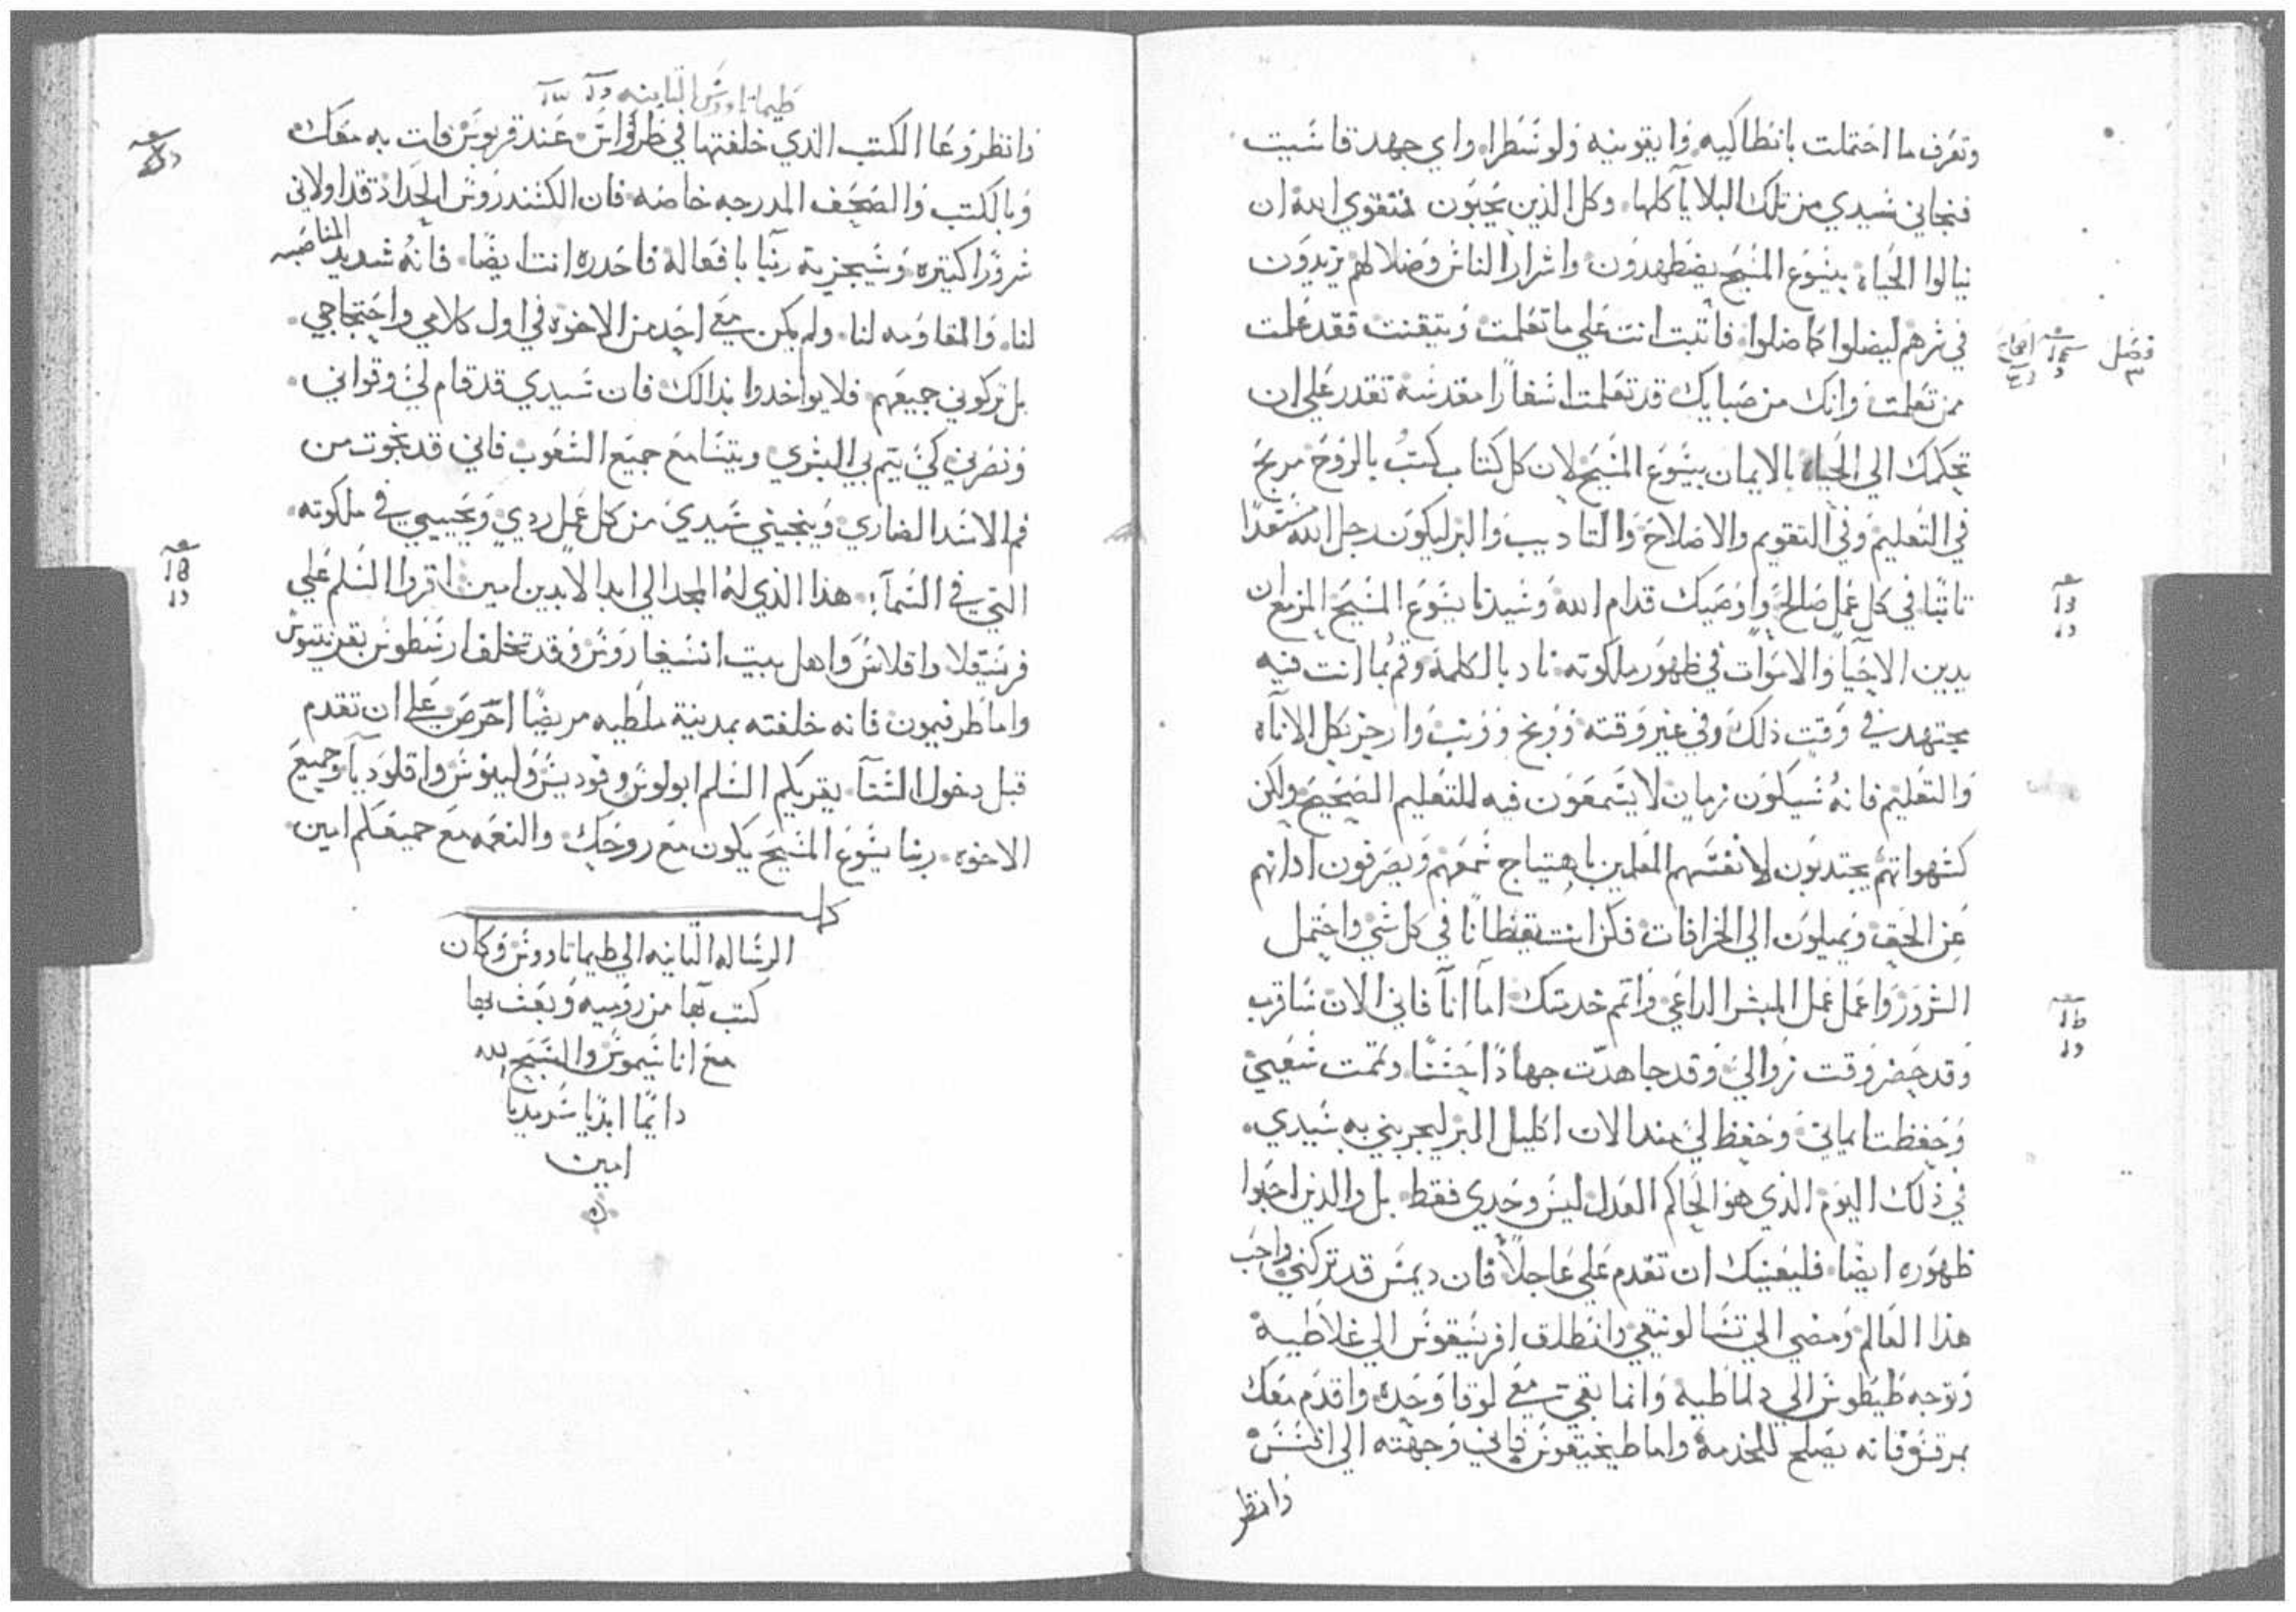 وتعرف ما احتملت بانطاكيه وايقونيه ولوسطرا واي جهد قاسيت
فنجاني سيدي من تلك البلايا كلها وكل الذين يحبون بتقوي الله ان
ينالوا الحياة بيسوع المسيح يضطهدون واشرار الناس وضلالهم يزيدون
في شرهم ليضلوا كما ضلوا فاثبت انت علي ما تعلمت وتيقنت فقد علمت
ممن تعلمت وانك من صبايك قد تعلمت اسفارا مقدسة تقدر علي ان
تحكمك الي الحياة بالايمان بيسوع المسيح لان كل كتاب كتب بالروح مربح
في التعليم وفي التقويم والاصلاح والتاديب والبر ليكون رجل الله مستعدا
ثابتا في كل عمل صالح واوصيك قدام الله وسيدنا يسوع المسيح المزمع ان
يدين الاحيا والاموات في ظهور ملكوته ناد بالكلمة وقم بما انت فيه
مجتهد في وقت ذلك وفي غير وقته ووبخ وونب وازجر بكل الاناه
والتعليم فانه سيكون زمان لا يسمعون فيه للتعليم الصحيح ولكن
كشهواتهم يجتذبون لانفسهم المعلمين باهتياج سمعهم ويصرفون اذانهم
عن الحق ويميلون الي الخرافات فكن انت يقظانا في كل شي واحتمل
الشرور واعمل عمل المبشر الداعي واتم خدمتك اما انا فاني الان ساقرب
وقد حضر وقت زوالي وقد جاهدت جهادا حسنا وتممت سعيي
وحفظت ايماني وحفظ لي منذ الان اكليل البر ليجزيني به سيدي
في ذلك اليوم الذي هو الحاكم العدل ليس وحدي فقط بل والذين احبوا
ظهوره ايضا فليعنيك ان تقدم علي عاجلا فان ديمس قد تركني واحب
هذا العالم ومضي الي تسالونيقي وانطلق اقريسيقوس الي غلاطية
وتوجه طيطوس الي دلماطية وانما بقي معي لوقا وحده واقدم معك
بمرقس فانه يصلح للخدمة واما طيخيقوس فاني وجهته الي افسس
وانظر
طيماتاووس الثانيه
وانظر وعا الكتب الذي خلفتها في طرواس عند قربوس فات به معك
وبالكتب والصحف المدرجه خاصه فان الكسندروس الحداد قد اولاني
شرورا كثيره وسيجزيه ربنا بافعاله فاحدره انت ايضا فانه شديد المناصبه
لنا والمقاومه لنا ولم يكن معي احد من الاخوه في اول كلامي واحتجاجي
بل تركوني جميعهم فلا يواخدوا بذالك فان سيدي قد قام لي وقواني
ونصرني كي يتم بي البشري ويتسامع جميع الشعوب فاني قد نجوت من
فم الاسد الضاري وينجيني سيدي من كل عمل ردي ويحييني في ملكوته
التي في السمآ هذا الذي له المجد الي ابد الابدين امين اقروا السلم علي
فرسقلا واقلاس واهل بيت انسيفاروس وقد تخلف ارسطوس بقرنتيوس
واما طرفيمون فانه خلفته بمدينة ملطيه مريضا احرص علي ان تقدم
قبل دخول الشتآ يقريكم السلم ابولوس وفوديس ولينوس واقلوديا وجميع
الاخوه ربنا يسوع المسيح يكون مع روحك والنعمه مع جميعكم امين
كمل
الرساله الثانيه الي طيماتاووس وكان
كتب بها من روميه وبعث بها
مع اناسيموس والسبح لله
دايما ابديا سرمديا
امين